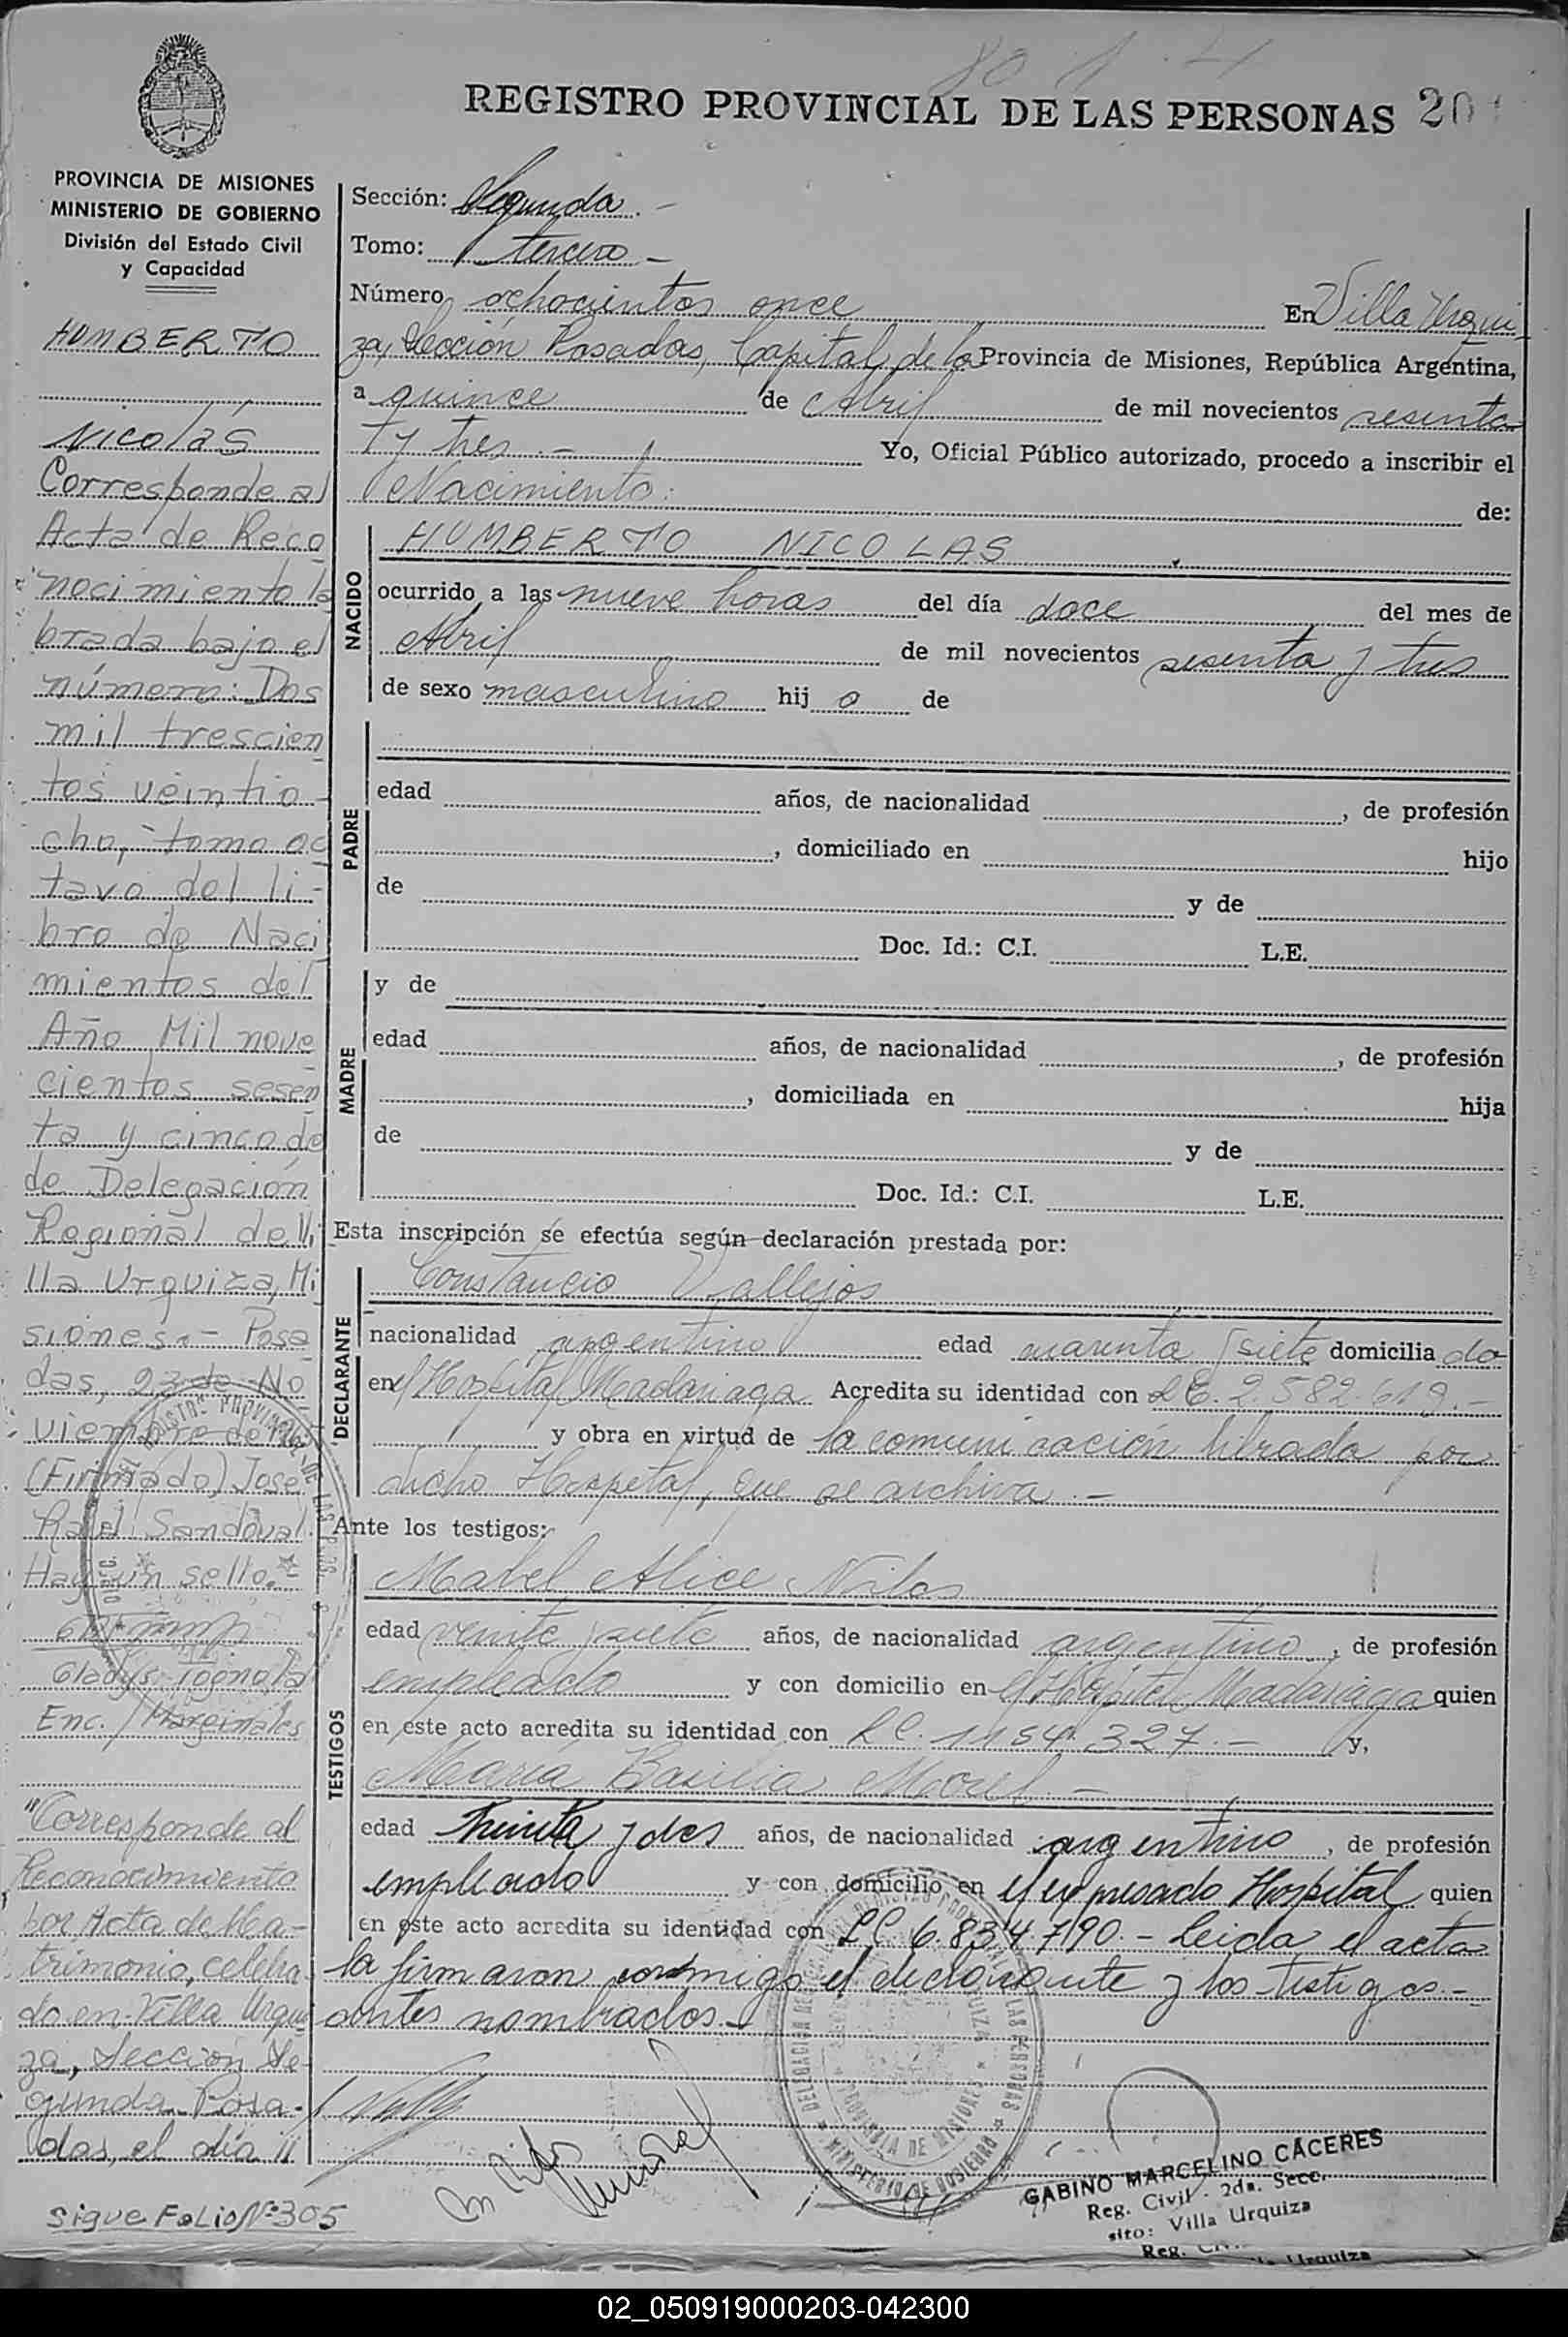 REGISTRO PROVINCIAL DE LAS PERSONAS 20
PROVINCIA DE MISIONES
MINISTERIO DE GOBIERNO
División del Estado Civil
y Capacidad
HUMBERTO
NICOLÁS
Corresponde al
Acta de Reco
nocimiento la
brada bajo el
número: Dos
mil trescien
tos veintio-
cho, tomo oc
tavo del li-
bro de Naci
mientos del
Año Mil nove
cientos sesen
ta y cinco de
de Delegación
Regional de Vi
lla Urquiza, Mi
siones.- Posa
das, 23 de No
viembre de
(Firmado) José
Sandoval.
Hay un sello.-
Gladys Tognola
Enc. Marginales
"Corresponde al
Reconocimiento
por Acta de Ma-
trimonio, celebra
do en Villa Urqui
za, Sección Se-
gunda Posa-
das, el día 11
Sigue Folio Nº 305
Sección: Segunda.-
Tomo: tercero-
Número ochocientos once En Villa Urqui
za, Sección Posadas, Capital de la Provincia de Misiones, República Argentina,
a quince de Abril de mil novecientos sesenta
y tres.- Yo, Oficial Público autorizado, procedo a inscribir el
Nacimiento: de:
NACIDO
HUMBERTO NICOLAS
ocurrido a las nueve horas del día doce del mes de
Abril de mil novecientos sesenta y tres
de sexo masculino hijo de
PADRE
edad años, de nacionalidad , de profesión
, domiciliado en hijo
de y de
Doc. Id.: C.I. L.E.
MADRE
y de
edad años, de nacionalidad , de profesión
, domiciliada en hija
de y de
Doc. Id.: C.I. L.E.
Esta inscripción se efectúa según declaración prestada por:
DECLARANTE
Constancio Vallejos
nacionalidad argentino edad cuarenta y siete domiciliado
en el Hospital Madariaga Acredita su identidad con L.E. 2.582.619.-
y obra en virtud de la comunicación librada por
dicho Hospital, que se archiva.-
Ante los testigos:
TESTIGOS
Mabel Alice
edad veinte y siete años, de nacionalidad argentino, de profesión
empleado y con domicilio en el Hospital Madariaga quien
en este acto acredita su identidad con L.C. 1154.327.- y,
María Basilia Morel-
edad treinta y dos años, de nacionalidad argentino, de profesión
empleado y con domicilio en el expresado Hospital quien
en este acto acredita su identidad con L.C. 6.834.790.- Leida el acta
la firmaron conmigo el declarante y los testigos.-
antes nombrados.-
GABINO MARCELINO CACERES
Reg. Civil - 2da. Secc.
sito: Villa Urquiza
Reg. Urquiza
02_050919000203-042300